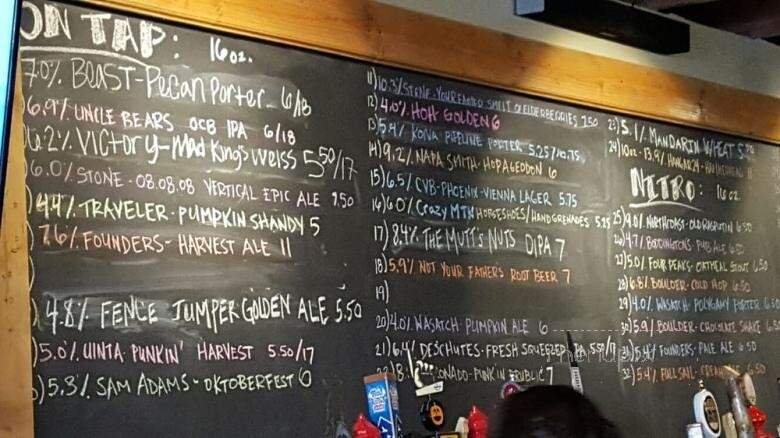 ON TAP: 16 oz.
7.0% BEAST - Pecan Porter 6/18
6.9% UNCLE BEARS OCB IPA 6/18
6.2% VICTORY - Mad King's Weiss 5.50/17
6.0% STONE - 08.08.08 VERTICAL EPIC ALE 9.50
4.4% TRAVELER - PUMPKIN SHANDY 5
7.6% FOUNDERS - HARVEST ALE 11
4.8% FENCE JUMPER GOLDEN ALE 5.50
5.0% UINTA PUNKIN' HARVEST 5.50/17
5.3% SAM ADAMS - OKTOBERFEST 6
11) 10.3% STONE - YOUR FATHER SMELT OF ELDERBERRIES 7.50
12) 4.0% HOH GOLDEN 6
13) 5.4% KONA PIPELINE PORTER 5.25/10.75
14) 9.2% NAPA SMITH - HOPAGEDDON 6
15) 6.5% CVB - PHOENIX - VIENNA LAGER 5.75
16) 6.0% Crazy MTN HORSESHOES/HANDGRENADES 5.25
17) 8.4% THE MUTT'S NUTS DIPA 7
18) 5.9% NOT YOUR FATHERS ROOT BEER 7
19)
20) 4.0% WASATCH - PUMPKIN ALE 6
21) 6.4% DESCHUTES - FRESH SQUEEZED IPA
22) 8. CORONADO - PUNKIN 7
23) 5.1% MANDARIN WHEAT
24) 10oz - 13.9% HANGAR 24
NITRO: 16 oz.
25) 9.0% NORTH COAST - OLD RASPUTIN 6.50
26) 4.7% BODDINGTONS - PUB ALE 6.50
27) 5.0% FOUR PEAKS - OATMEAL STOUT 6.50
28) 6.8% BOULDER - COLD HOP 6.50
29) 4.0% WASATCH - POLYGAMY PORTER 6.50
30) 5.9% BOULDER - CHOCOLATE SHAKE
31) 5.4% FOUNDERS - PALE ALE 6.50
32) 5.4% FULL SAIL